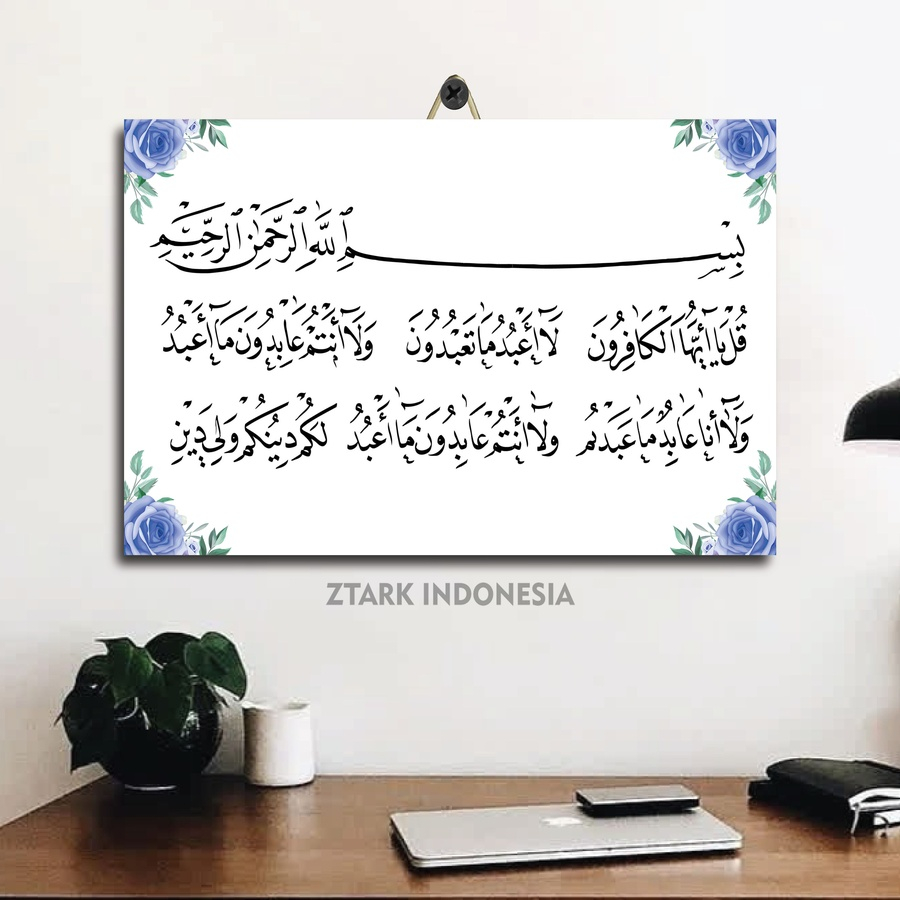 بِسْمِ ٱللَّهِ ٱلرَّحْمَٰنِ ٱلرَّحِيْمِ
قُلْ يَاأَيُّهَا الْكَافِرُونَ لَاأَعْبُدُ مَاتَعْبُدُونَ وَلَاأَنْتُمْ عَابِدُونَ مَاأَعْبُدُ
وَلَاأَنَا عَابِدٌ مَا عَبَدْتُمْ وَلَاأَنْتُمْ عَابِدُونَ مَاأَعْبُدُ لَكُمْ دِينُكُمْ وَلِيَ دِينِ
ZTARK INDONESIA